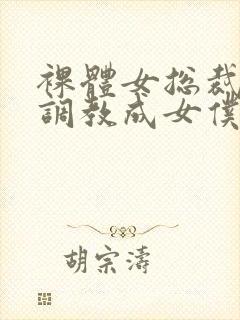 裸體女总裁
調教成女僕
胡宗濤